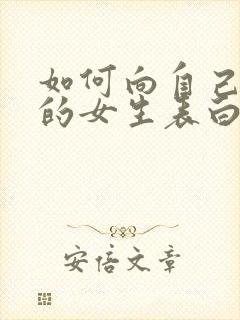 如何向自己
的女生表白
安信文章